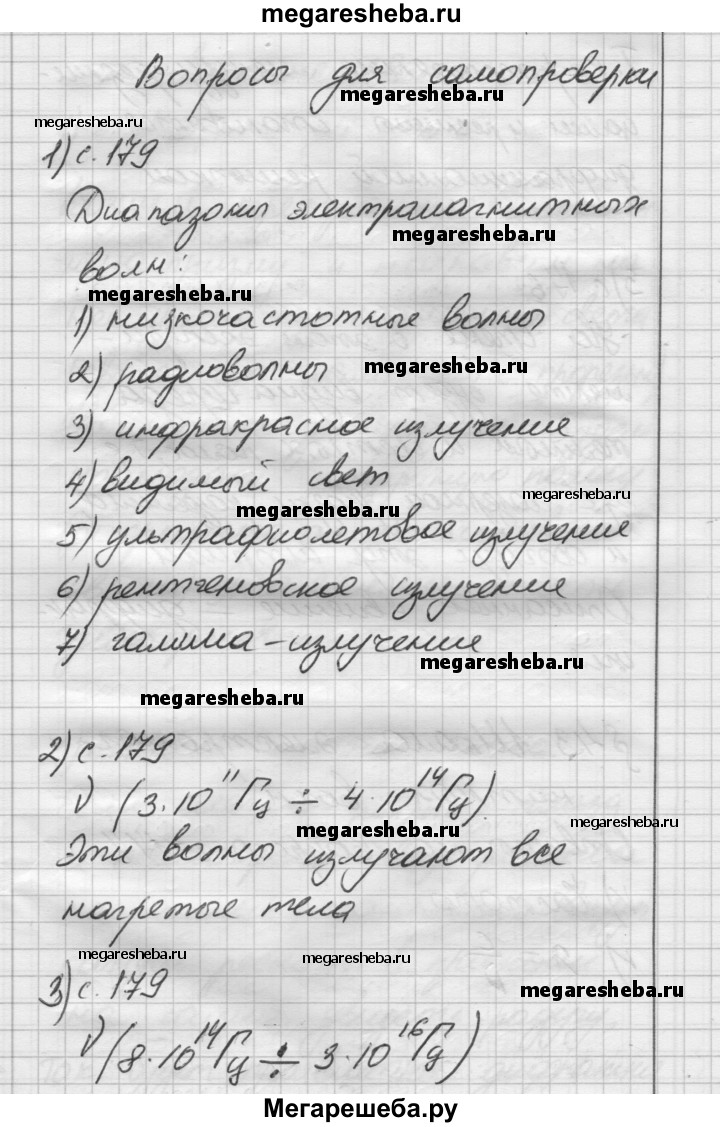 megaresheba.ru
Вопросы для самопроверки
megaresheba.ru
megaresheba.ru
1) с. 179
Диапазоны электромагнитных
megaresheba.ru
волн:
megaresheba.ru
1) низкочастотные волны
2) радиоволны
megaresheba.ru
3) инфракрасное излучение
4) видимый свет
megaresheba.ru
megaresheba.ru
5) ультрафиолетовое излучение
6) рентгеновское излучение
7) гамма-излучение
megaresheba.ru
megaresheba.ru
2) с. 179
ν (3·10¹¹Гц ÷ 4·10¹⁴Гц)
megaresheba.ru
megaresheba.ru
Эти волны излучают все
нагретые тела
megaresheba.ru
megaresheba.ru
3) с. 179
megaresheba.ru
ν (8·10¹⁴Гц ÷ 3·10¹⁶Гц)
Мегарешеба.ру